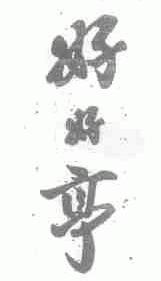 好好亭